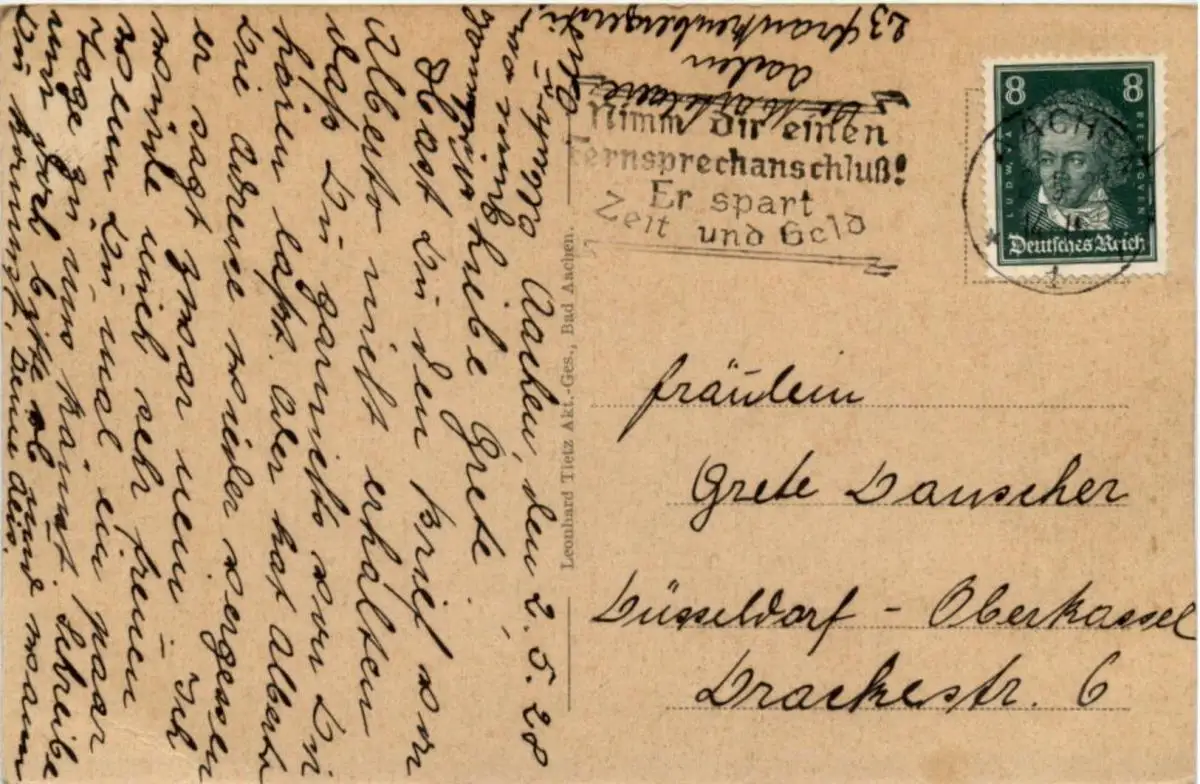 Aachen, den 2. 5. 28
Liebe Grete
Hast Du den Brief von
Alberto nicht erhalten
daß Du garnichts von Dir
hören laßt. Oder hat Alberto
Die Adresse wieder vergessen
er sagt zwar nein – Ich
würde mich sehr freuen
wenn Du mal ein paar
Tage zu uns kämst. Schreibe
mir dort bitte ob und wann
Du kommst, Deine
23 Frankenbergerstr.
Aachen
Nimm Dir einen
Fernsprechanschluß!
Er spart
Zeit und Geld
8 8
LUDW. VAN BEETHOVEN
Deutsches Reich
AACHEN
1
Leonhard Tietz Akt.-Ges., Bad Aachen.
Fräulein
Grete Dauscher
Düsseldorf - Oberkassel
Drackestr. 6